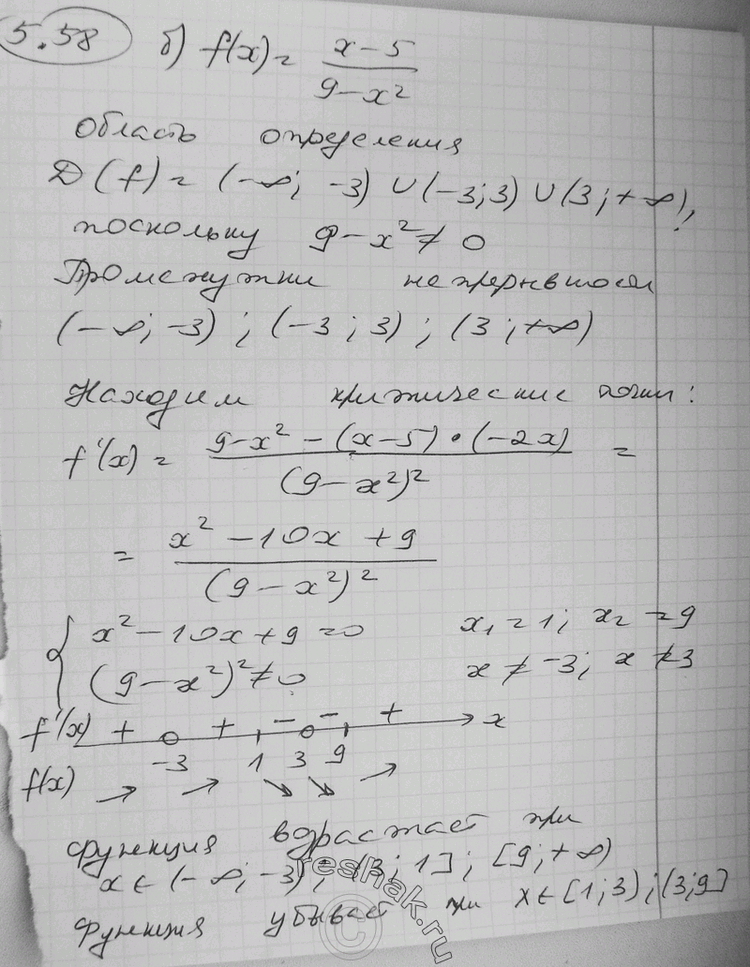 5.58 б) f(x) = (x-5)/(9-x²)
область определения
D(f) = (-∞; -3) ∪ (-3; 3) ∪ (3; +∞),
поскольку 9-x² ≠ 0
Промежутки непрерывности
(-∞; -3) ; (-3; 3) ; (3; +∞)
Находим критические точки:
f'(x) = (9-x² - (x-5)·(-2x))/(9-x²)² =
= (x² - 10x + 9)/(9-x²)²
{ x² - 10x + 9 = 0 x₁ = 1; x₂ = 9
(9-x²)² ≠ 0 x ≠ -3; x ≠ 3
f'(x) + + - - + x
-3 1 3 9
f(x) → → ↘ ↘ →
функция возрастает при
x ∈ (-∞; -3); 3; 1]; [9; +∞)
функция убывает при x ∈ [1; 3); (3; 9]
reshak.ru
©